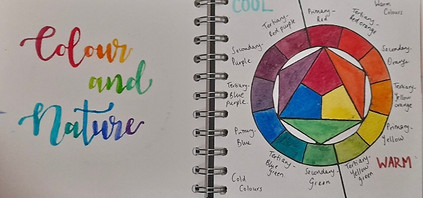 Colour
and
Nature
COOL
Warm
Colours
Primary-
Red
Tertiary-
Red purple
Tertiary-
Red orange
Secondary-
Purple
Secondary-
Orange
Tertiary-
Blue
purple
Tertiary-
Yellow
orange
Primary-
Blue
Primary-
Yellow
Tertiary-
Blue green
Secondary-
Green
Tertiary-
Yellow
green
WARM
Cold
Colours